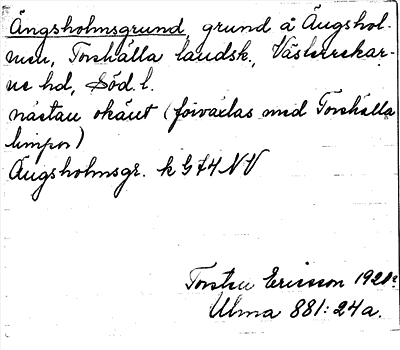 Ängsholmsgrund, grund å Ängshol-
men, Torshälla landsk., Västerrekar-
ne hd, Söd. l.
nästan okänt (förväxlas med Torshälla
limpor)
Ängsholmsgr. k G 74 NV
Torsten Ericsson 192
Ulma 881:24a.